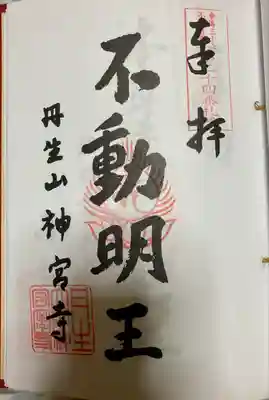 奉拝
不動明王
丹生山神宮寺